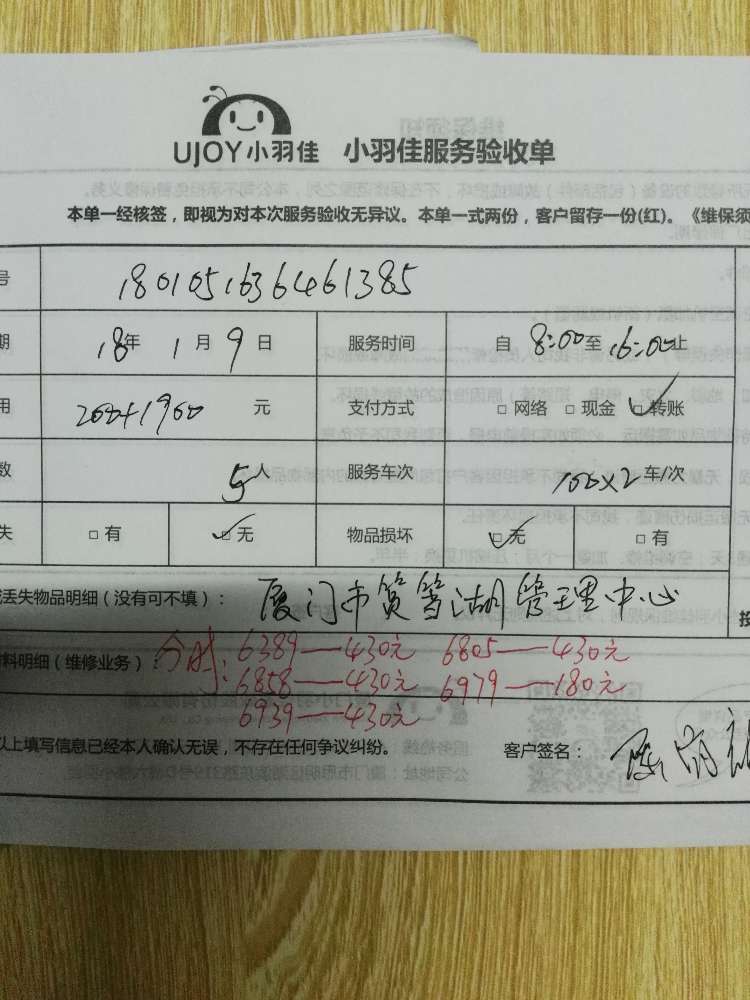 UJOY小羽佳 小羽佳服务验收单
本单一经核签，即视为对本次服务验收无异议。本单一式两份，客户留存一份(红)。《维保须
号 1801051636461385
期 18年 1月 9日 服务时间 自 8:00至 16:00止
用 200+1900 元 支付方式 □ 网络 □ 现金 ☑ 转账
数 5人 服务车次 100×2 车/次
失 □ 有 ☑ 无 物品损坏 ☑ 无 □ 有
丢失物品明细（没有可不填）： 厦门市筼筜湖管理中心
料明细（维修业务）： 分成: 6389—430元 6805—430元
6858—430元 6979—180元
6939—430元
以上填写信息已经本人确认无误，不存在任何争议纠纷。 客户签名：